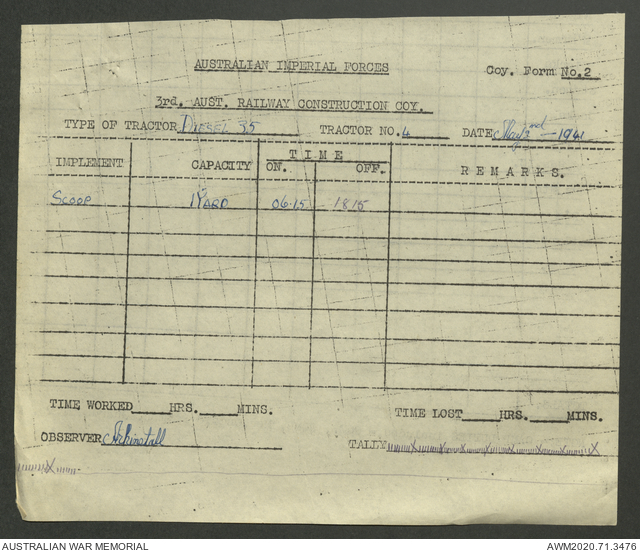 AUSTRALIAN IMPERIAL FORCES
Coy. Form No.2
3rd. AUST. RAILWAY CONSTRUCTION COY.
TYPE OF TRACTOR DIESEL 35 TRACTOR NO. 4 DATE May 2nd - 1941
IMPLEMENT CAPACITY TIME ON. OFF. REMARKS.
SCOOP 1 YARD 06.15 1815
TIME WORKED HRS. MINS. TIME LOST HRS. MINS.
OBSERVER
TALLY
AUSTRALIAN WAR MEMORIAL AWM2020.71.3476